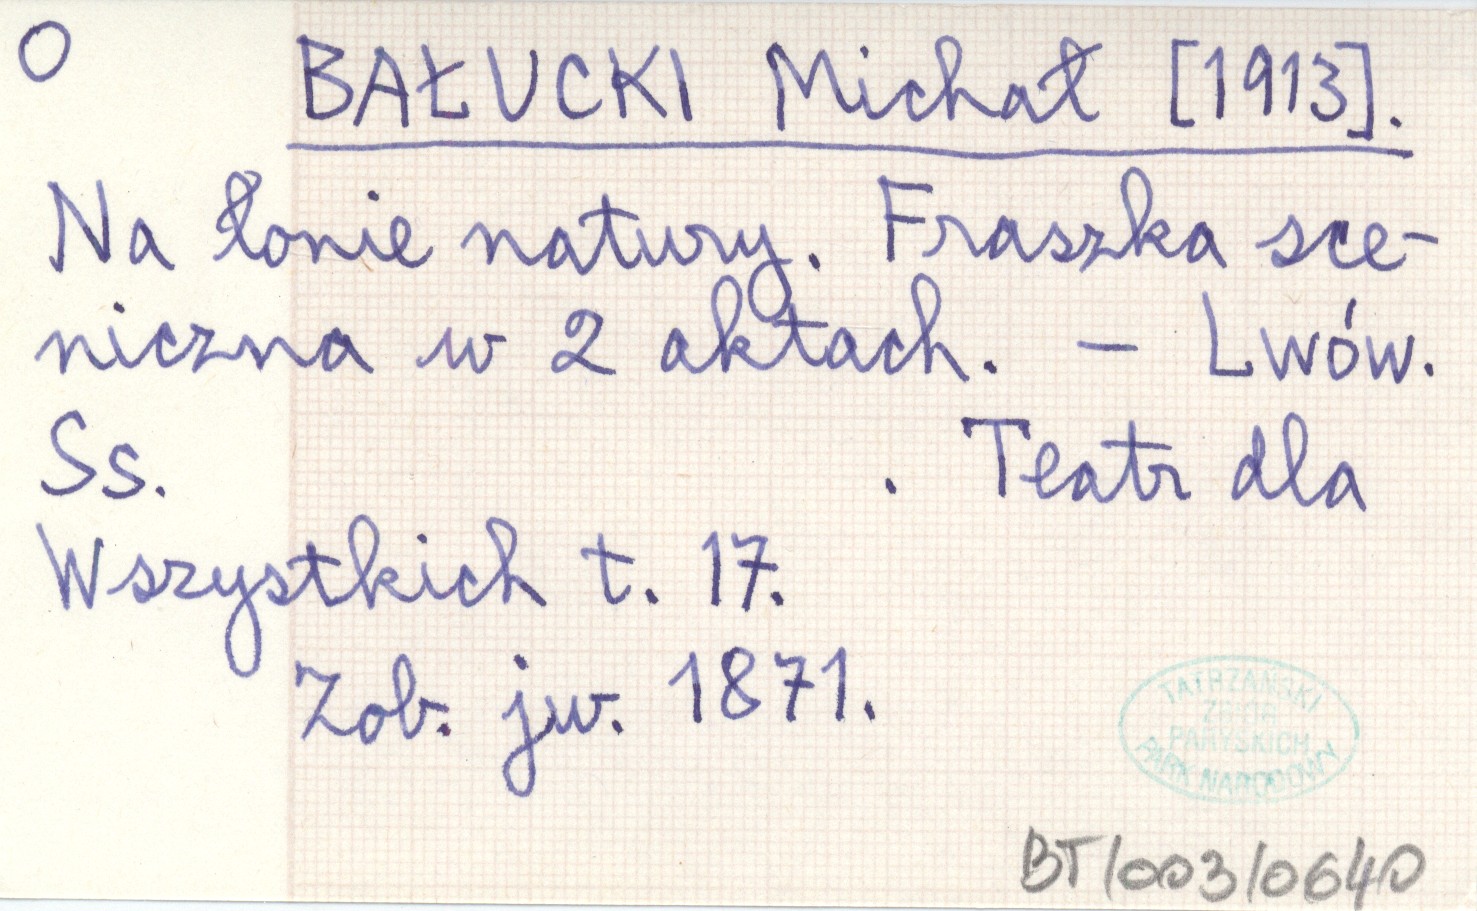 O BAŁUCKI Michał [1913].
Na łonie natury. Fraszka sce-
niczna w 2 aktach. – Lwów.
Ss. . Teatr dla
Wszystkich t. 17.
Zob. jw. 1871.
TATRZAŃSKI
ZBIÓR
PARYSKICH
PARK NARODOWY
BT/003/0640